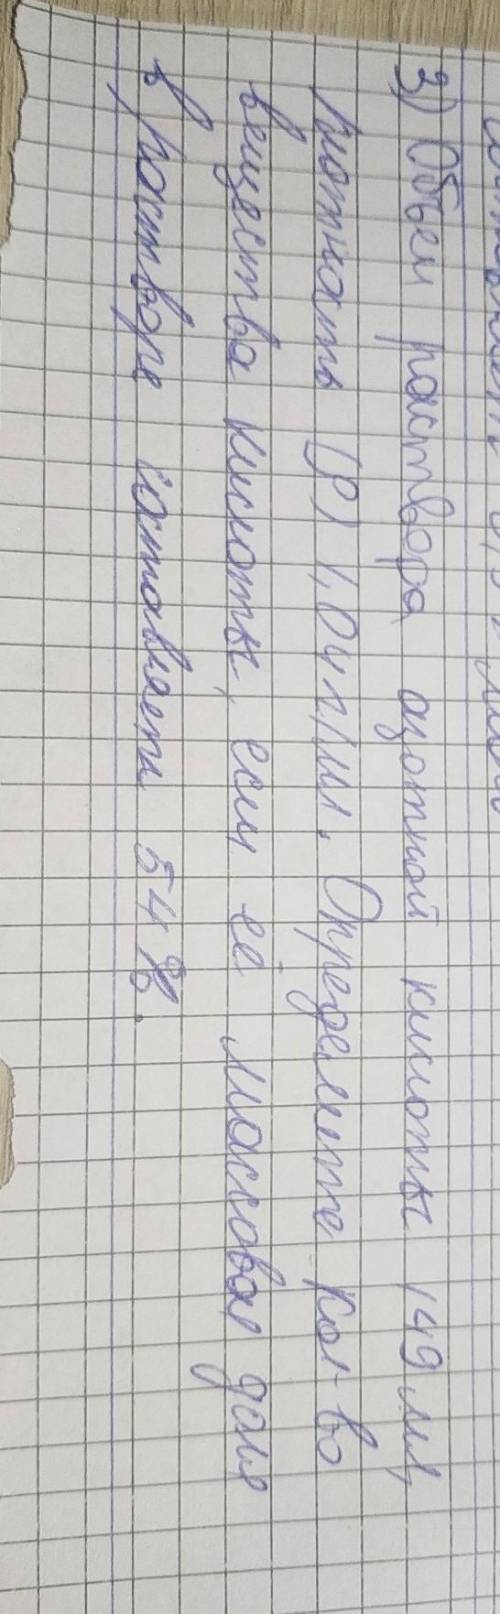 3) Объем раствора азотной кислоты 149 мл,
плотность (ρ) 1,04 г/мл. Определите кол-во
вещества кислоты, если её массовая доля
в растворе составляет 54%.